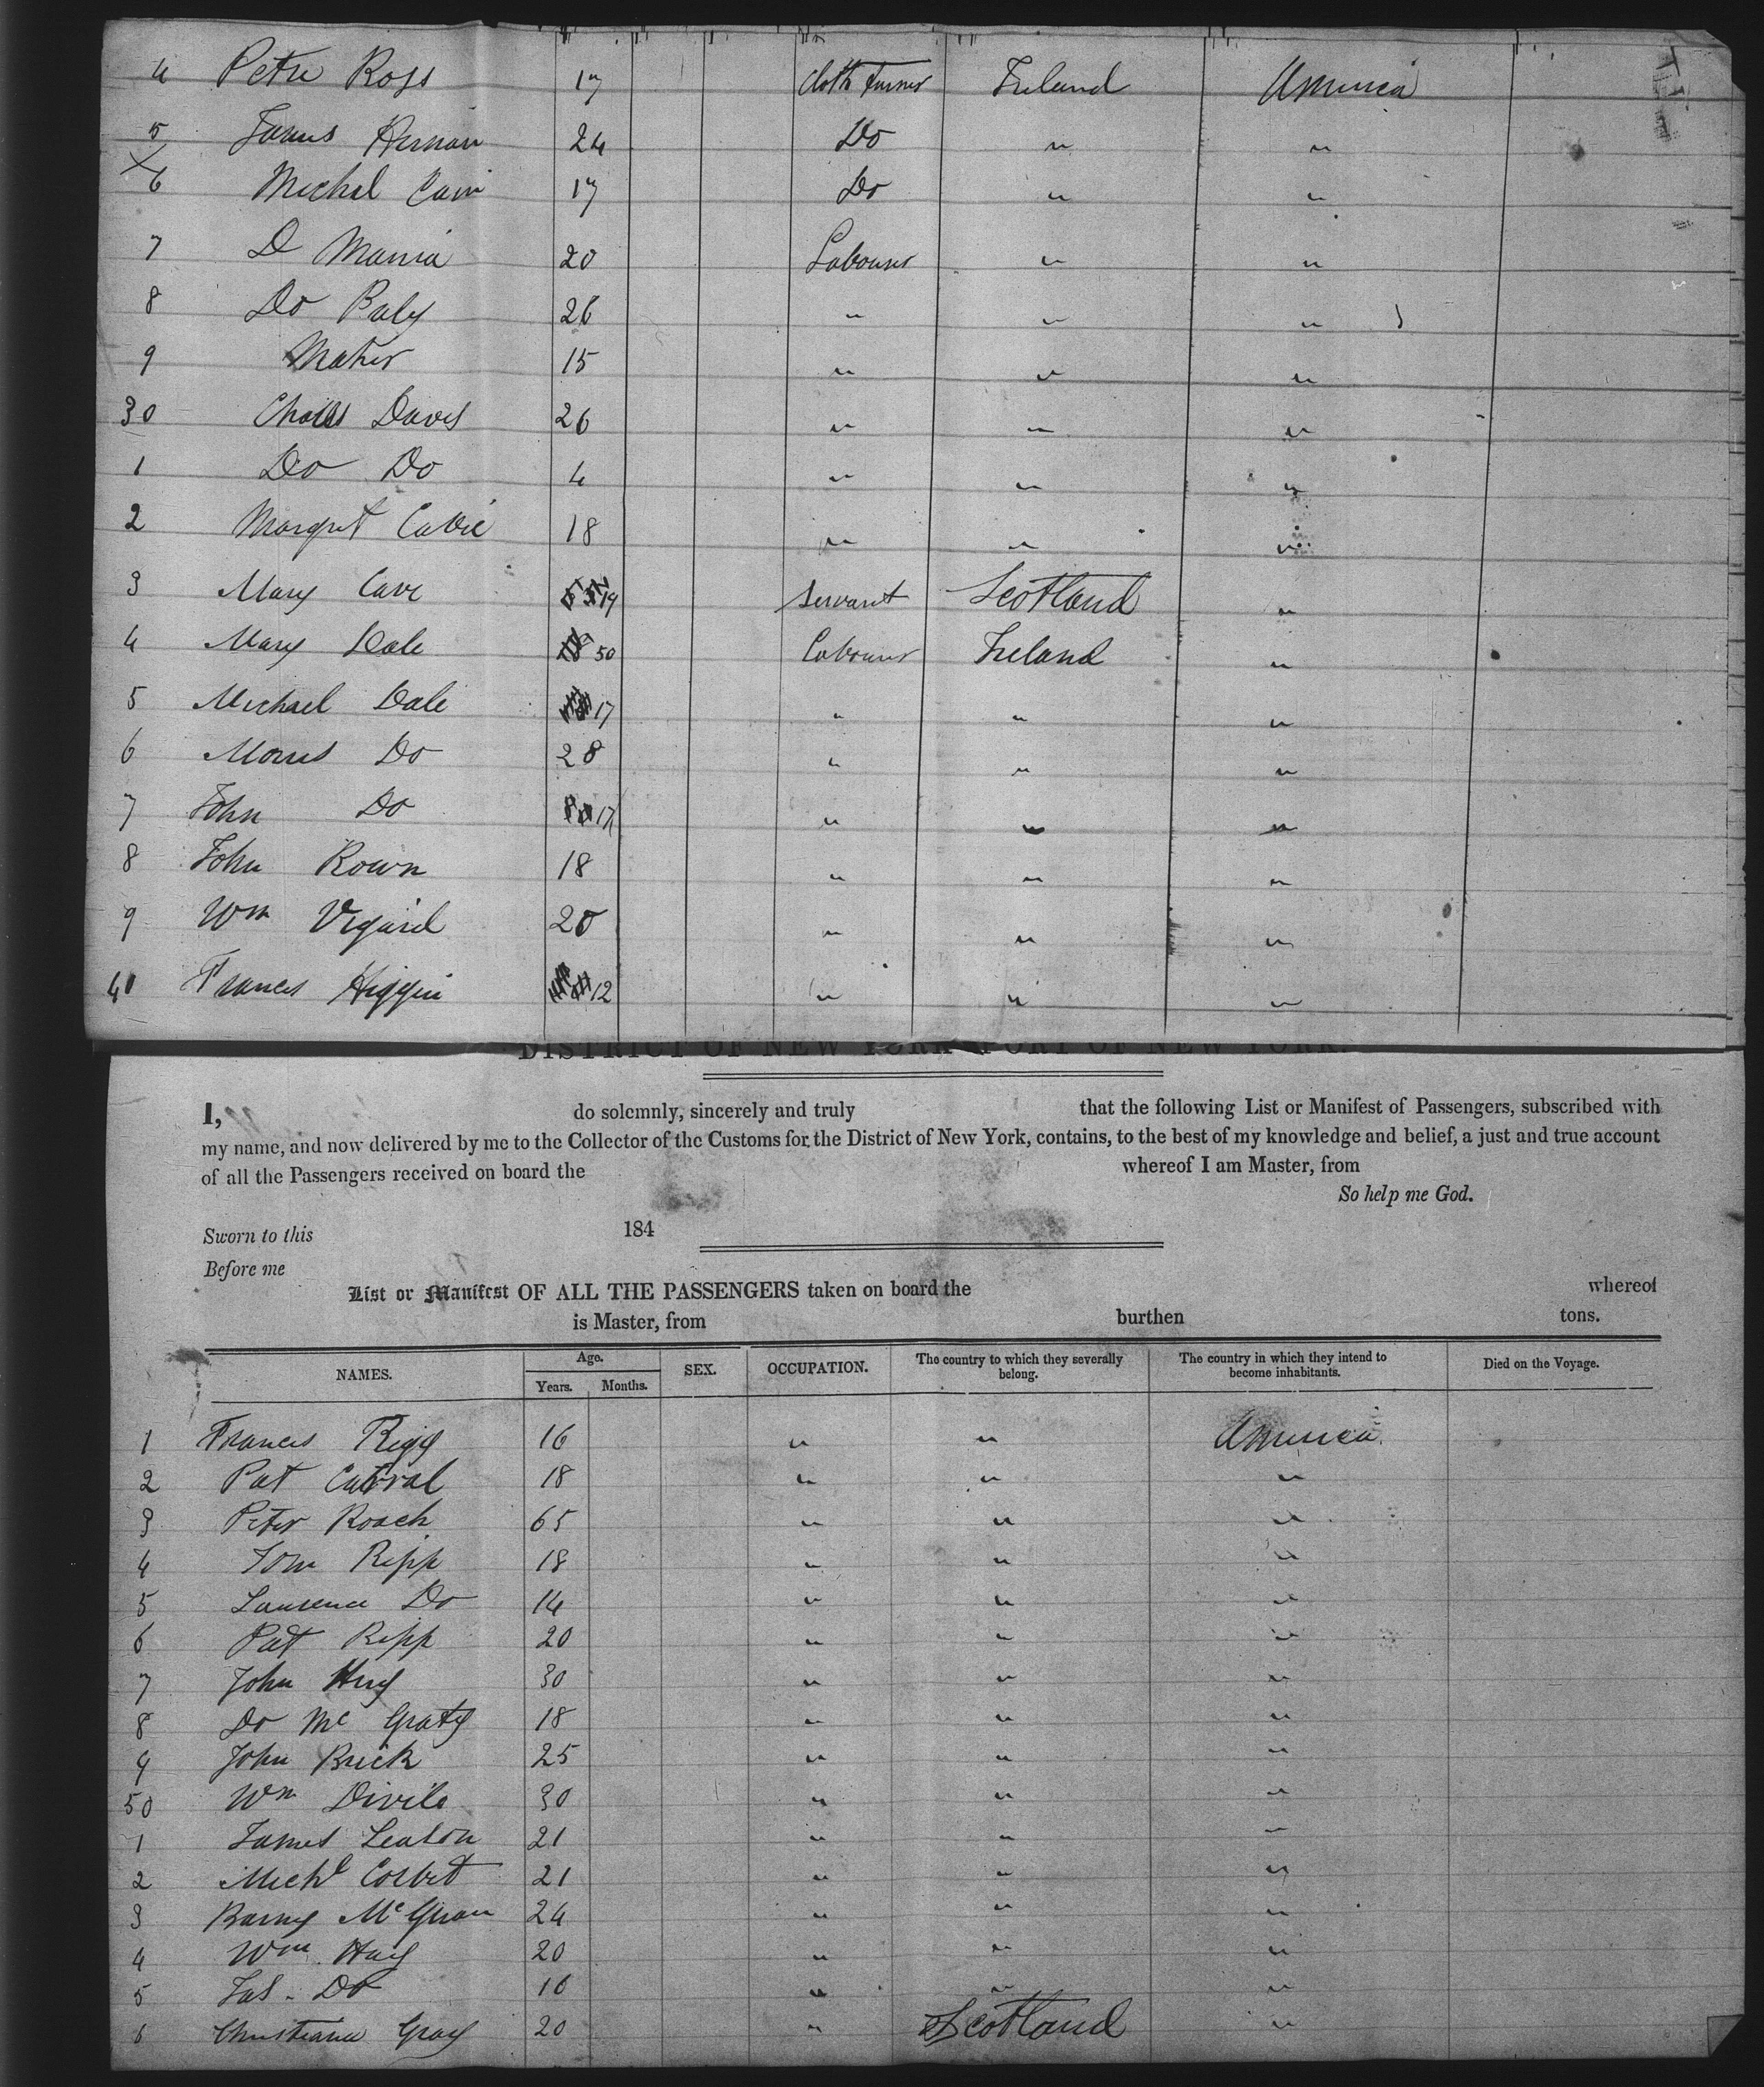 4 Peter Ross 17 Cloth turner Ireland America
5 James Hernan 24 Do " "
6 Michal Cain 17 Do " "
7 D Mania 20 Labourer " "
8 Do Baly 26 " " "
9 Maher 15 " " "
30 Charls Daves 26 " " "
1 Do Do 4 " " "
2 Margret 18 " " "
3 Mary Cave 19 Servant Scotland "
4 Mary Dale 50 Labourer Ireland "
5 Michael Dale 17 " " "
6 Morris Do 28 " " "
7 John Do 17 " " "
8 John Rown 18 " " "
9 Wm Vigard 20 " " "
40 Frances Higgin 12 " " "
DISTRICT OF NEW YORK PORT OF NEW YORK.
I, do solemnly, sincerely and truly that the following List or Manifest of Passengers, subscribed with
my name, and now delivered by me to the Collector of the Customs for the District of New York, contains, to the best of my knowledge and belief, a just and true account
of all the Passengers received on board the whereof I am Master, from
So help me God.
Sworn to this 184
Before me
List or Manifest OF ALL THE PASSENGERS taken on board the whereof
is Master, from burthen tons.
NAMES. Age. Years. Months. SEX. OCCUPATION. The country to which they severally belong. The country in which they intend to become inhabitants. Died on the Voyage.
1 Frances Rigg 16 " " America
2 Pat 18 " " "
3 Peter Roach 65 " " "
4 Tom Ripp 18 " " "
5 Laurence Do 14 " " "
6 Pat Ripp 20 " " "
7 John Hug 30 " " "
8 Do Mc Graty 18 " " "
9 John Brick 25 " " "
50 Wm Divile 30 " " "
1 James Leaton 21 " " "
2 Michl Corbet 21 " " "
3 Barny 24 " " "
4 Wm Hay 20 " " "
5 Jas. Do 16 " " "
6 Christiana Gray 20 " Scotland "